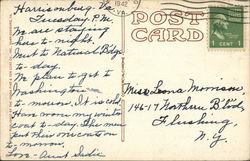 Harrisonburg Va.
Tuesday P.M.
We are staying
here to-night.
Went to Natural Bridge
to-day.
We plan to get to
Washington
to-morrow. It is cold.
Have worn my winter
coat to-day. The men
get their vacation
to-morrow.
Love - Aunt Sadie
POST
CARD
1942
VA.
1 CENT 1
Miss Leona Morrison
146-17 Northern Blvd,
Flushing,
N.Y.